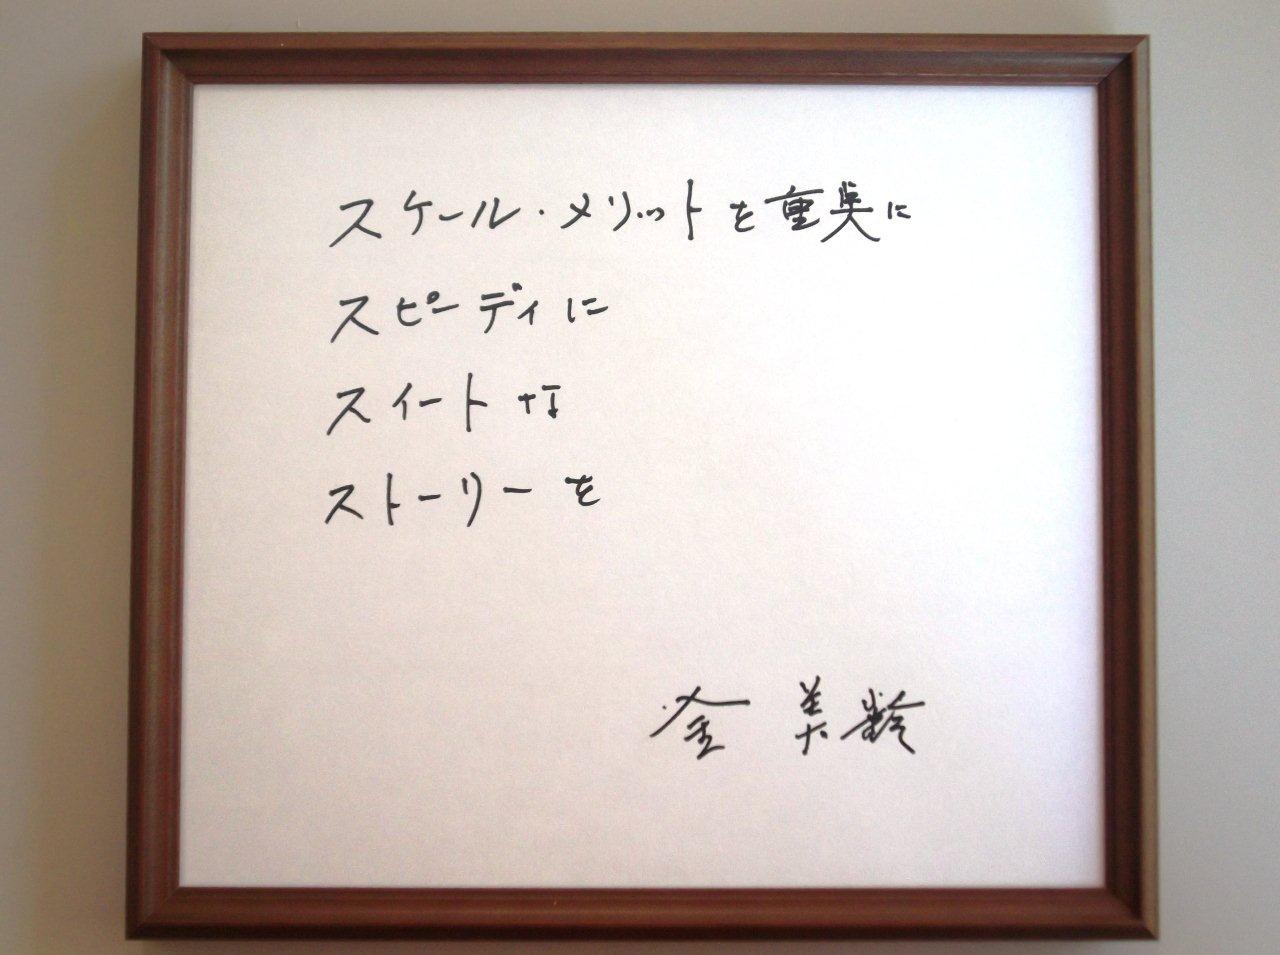 スケール・メリットを重点に
スピーディに
スイートな
ストーリーを
金 美齢